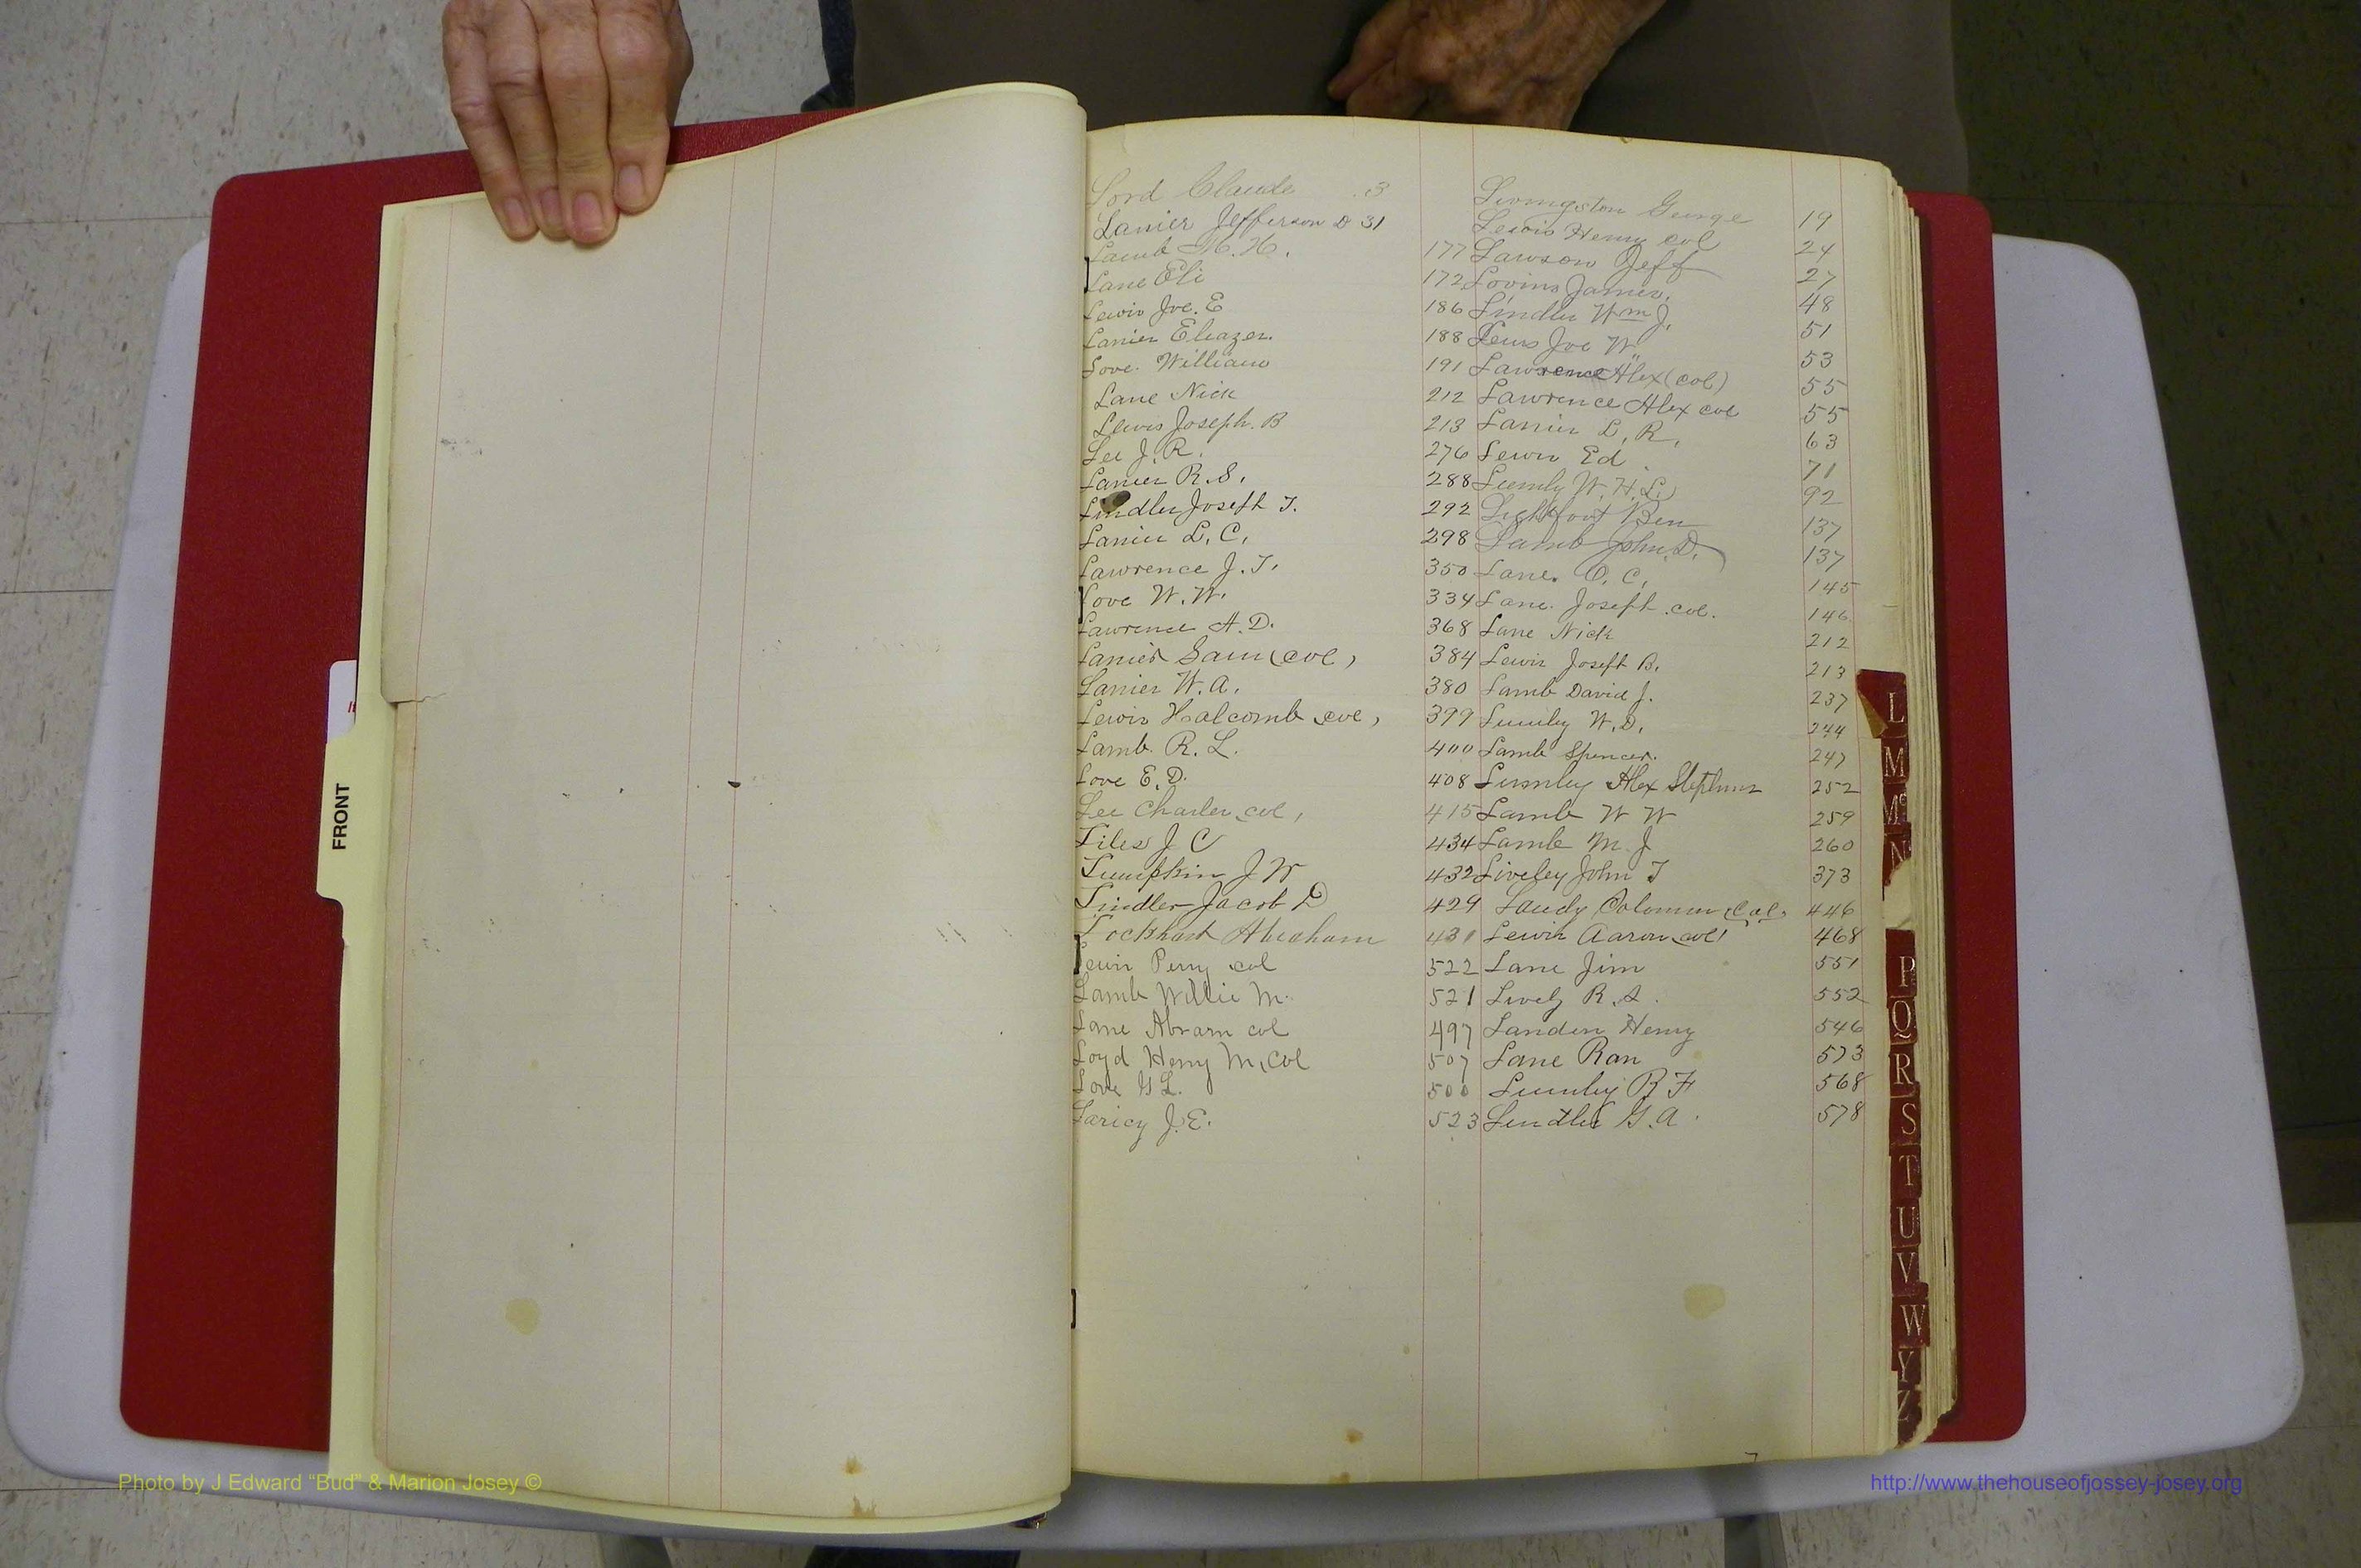 Lord Claude 3
Lanier Jefferson D 31
Lamb M. H. 177
Lane Eli 172
Lewis Joe. E 186
Lanier Eleazer. 188
Love. William 191
Lane Nick 212
Lewis Joseph. B 213
Lee J. R. 276
Lanier R. S. 288
Lindler Joseph T. 292
Lanier L. C. 298
Lawrence J. T. 350
Love W. W. 334
Lawrence A. D. 368
Lanier Sam (col) 384
Lanier W. A. 380
Lewis Halcomb col, 399
Lamb. R. L. 400
Love E. D. 408
Lee Charles col, 415
Liles J C 434
Lumpkin J W 432
Lindler Jacob D 429
Lockhart Abraham 431
Lewis Perry col 522
Lamb Willie M. 521
Lane Abram col 497
Loyd Henry M, Col 507
Love G L. 500
J. E. 523
Livingston George 19
Lewis Henry col 24
Lawson Jeff 27
Lovins James. 48
Lindler Wm J. 51
Lewis Joe W 53
Lawrence Alex (col) 55
Lawrence Alex col 55
Lanier L. R. 63
Lewis Ed 71
Lumly W. H. L. 92
Lightfoot Ben 137
Lamb John D. 137
Lane. O. C. 145
Lane. Joseph. col. 146
Lane Nick 212
Lewis Joseph B. 213
Lamb David J. 237
Lumley W. D. 244
Lamb Spencer. 247
Lumley Alex Stephens 252
Lamb W W 259
Lamb M. J 260
Liveley John T 373
Landy Coloman (Col, 446
Lewis Aaron col 468
Lane Jim 551
Lively R. S. 552
Landen Henry 546
Lane Ran 573
Lumley B F 568
Lindler G. A. 578
FRONT
L
M
Mc
N
P
Q
R
S
T
U
V
W
Y
Z
Photo by J Edward “Bud” & Marion Josey ©
http://www.thehouseofjossey-josey.org